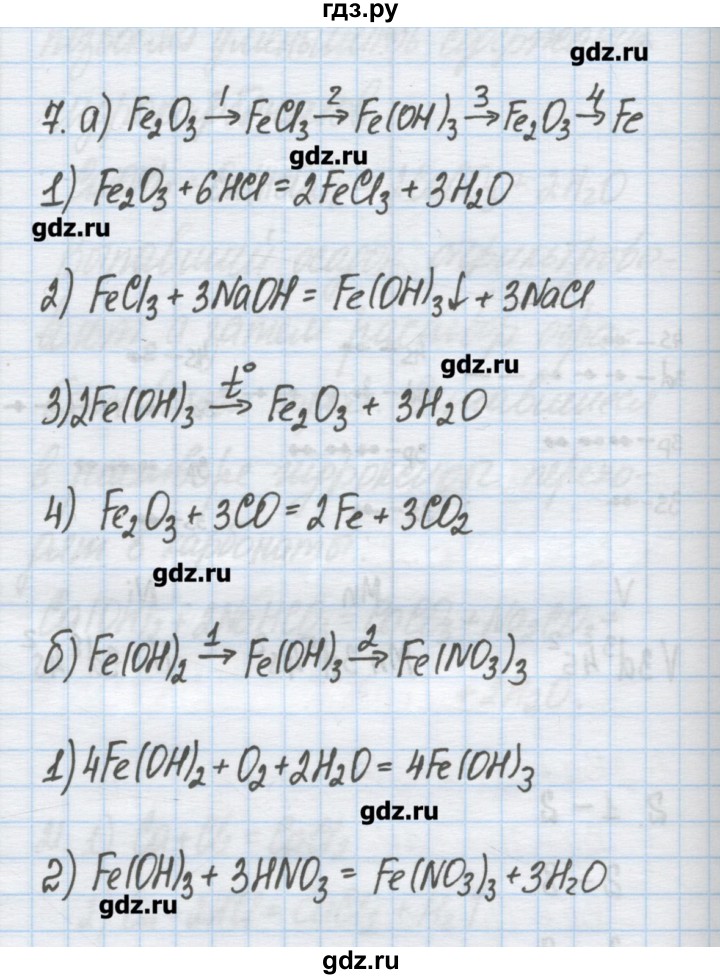 гдз.ру
gdz.ru
7. а) Fe₂O₃ →¹ FeCl₃ →² Fe(OH)₃ →³ Fe₂O₃ →⁴ Fe
gdz.ru
1) Fe₂O₃ + 6HCl = 2FeCl₃ + 3H₂O
gdz.ru
2) FeCl₃ + 3NaOH = Fe(OH)₃↓ + 3NaCl
gdz.ru
3) 2Fe(OH)₃ →t° Fe₂O₃ + 3H₂O
4) Fe₂O₃ + 3CO = 2Fe + 3CO₂
gdz.ru
б) Fe(OH)₂ →¹ Fe(OH)₃ →² Fe(NO₃)₃
1) 4Fe(OH)₂ + O₂ + 2H₂O = 4Fe(OH)₃
gdz.ru
2) Fe(OH)₃ + 3HNO₃ = Fe(NO₃)₃ + 3H₂O
gdz.ru
gdz.ru